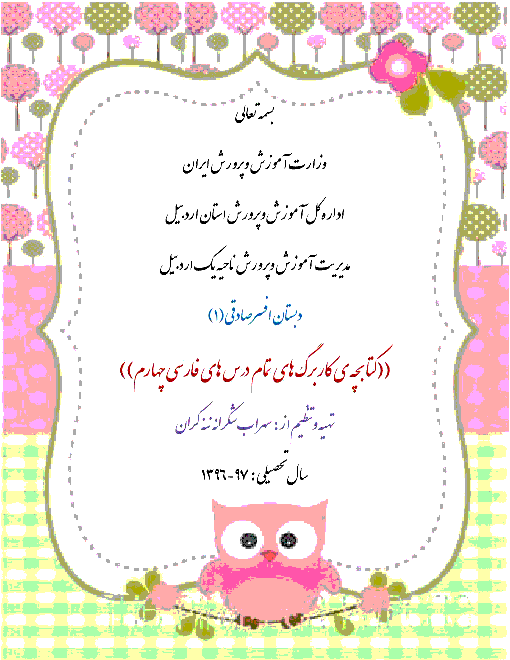 بسمه تعالی
وزارت آموزش و پرورش ایران
اداره کل آموزش و پرورش استان اردبیل
مدیریت آموزش و پرورش ناحیه یک اردبیل
دبستان افسر صادقی (۱)
((کتابچه ی کاربرگ های تمام درس های فارسی چهارم))
تهیه و تنظیم از : سهراب شکرانه ننه کران
سال تحصیلی : ۹۷-۱۳۹۶